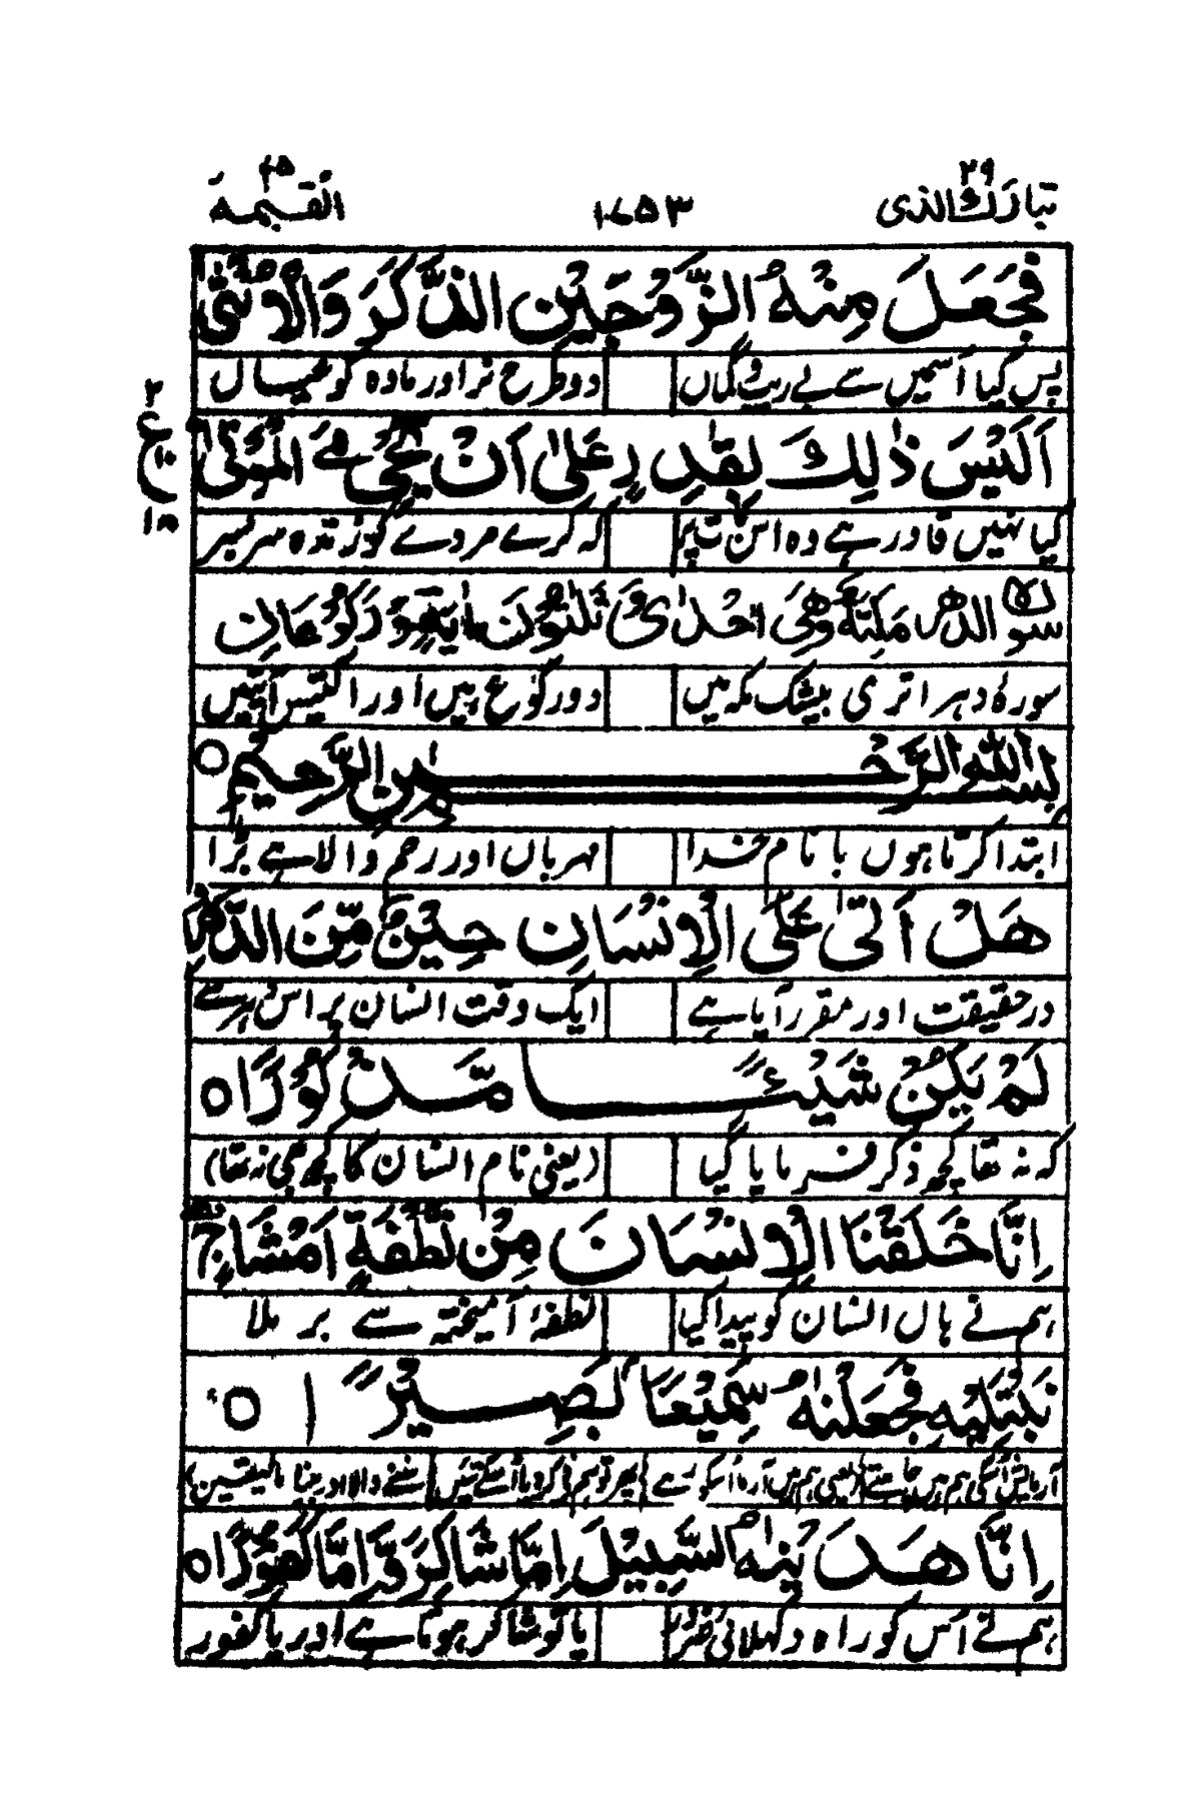 تبارك الذی ۲۹ ۱۰۵۳ القیمة ۷۵
فَجَعَلَ مِنْهُ الزَّوْجَيْنِ الذَّكَرَ وَالْاُنْثٰى
پس کیا اسمیں سے بے ریب و گماں دو طرح نر اور مادہ کو عیاں
اَلَيْسَ ذٰلِكَ بِقٰدِرٍ عَلٰى اَنْ يُّحْيِىَ الْمَوْتٰى
کیا نہیں قادر ہے وہ اس بات پر کہ کرے مردے کو زندہ سر بسر
۲ ع ۱۰ ۱۸
سورة الدهر مكية وهى احدى وثلثون اية وركوعان
سورۂ دہر اتری بیشک مکہ میں دو رکوع ہیں اور اکتیس آیتیں
بِسْمِ اللّٰهِ الرَّحْمٰنِ الرَّحِيْمِ ○
ابتدا کرتا ہوں با نام خدا مہرباں اور رحم والا ہے بڑا
هَلْ اَتٰى عَلَى الْاِنْسَانِ حِيْنٌ مِّنَ الدَّهْرِ
در حقیقت اور مقرر آیا ہے ایک وقت انسان پر اس دہر سے
لَمْ يَكُنْ شَيْئًا مَّذْكُوْرًا ○
کہ نہ تھا کچھ ذکر فرمایا گیا (یعنی نام انسان کا کچھ بھی نہ تھا)
اِنَّا خَلَقْنَا الْاِنْسَانَ مِنْ نُّطْفَةٍ اَمْشَاجٍ
ہم نے ہاں انسان کو پیدا کیا نطفۂ آمیختہ سے بر ملا
نَّبْتَلِيْهِ فَجَعَلْنٰهُ سَمِيْعًۢا بَصِيْرًا ○
آزمایش اسکی ہم ہیں چاہتے (یعنی ہم ہیں آزماتے اسکو) پھر تو ہم نے کر دیا اسکے تئیں سننے والا اور بینا بالیقین
اِنَّا هَدَيْنٰهُ السَّبِيْلَ اِمَّا شَاكِرًا وَّاِمَّا كَفُوْرًا ○
ہم نے اس کو راہ دکھلائی ضرور یا تو شاکر ہوتا ہے اور یا کفور